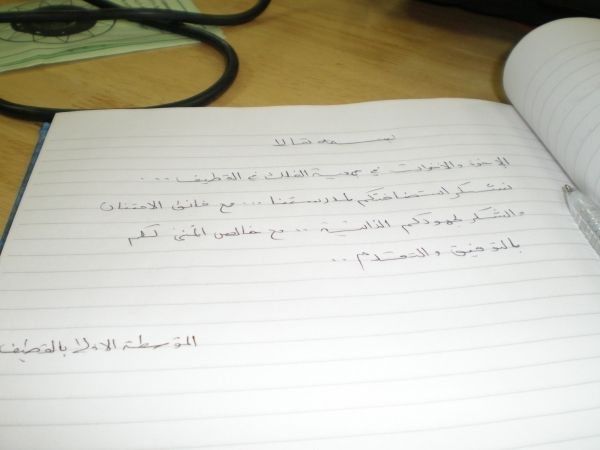 بسمه تعالى
الإخوة والأخوات في جمعية الفلك في القطيف ...
نشكر استضافتكم لمدرستنا ... مع فائق الامتنان
والشكر لجهودكم الذاتية .. مع خالص التمني لكم
بالتوفيق والتقدم ..
المتوسطة الاولى بالقطيف